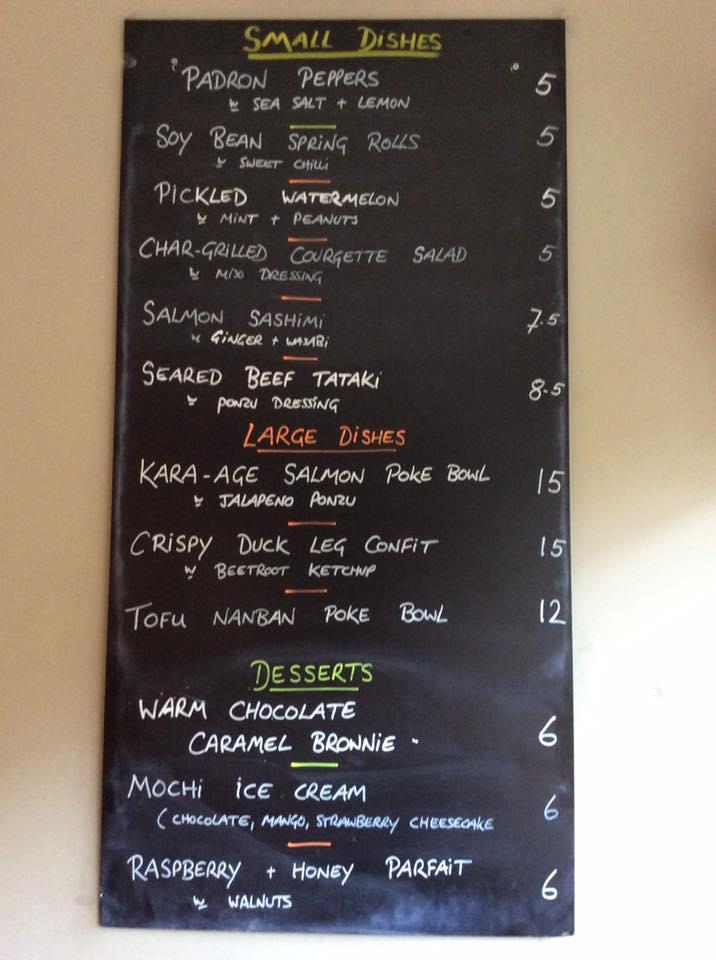 SMALL DISHES
PADRON PEPPERS 5
W SEA SALT + LEMON
SOY BEAN SPRING ROLLS 5
W SWEET CHILLI
PICKLED WATERMELON 5
W MINT + PEANUTS
CHAR-GRILLED COURGETTE SALAD 5
W MISO DRESSING
SALMON SASHIMI 7.5
W GINGER + WASABI
SEARED BEEF TATAKI 8.5
W PONZU DRESSING
LARGE DISHES
KARA-AGE SALMON POKE BOWL 15
W JALAPENO PONZU
CRISPY DUCK LEG CONFIT 15
W BEETROOT KETCHUP
TOFU NANBAN POKE BOWL 12
DESSERTS
WARM CHOCOLATE
CARAMEL BROWNIE. 6
MOCHI ICE CREAM
(CHOCOLATE, MANGO, STRAWBERRY CHEESECAKE 6
RASPBERRY + HONEY PARFAIT 6
W WALNUTS